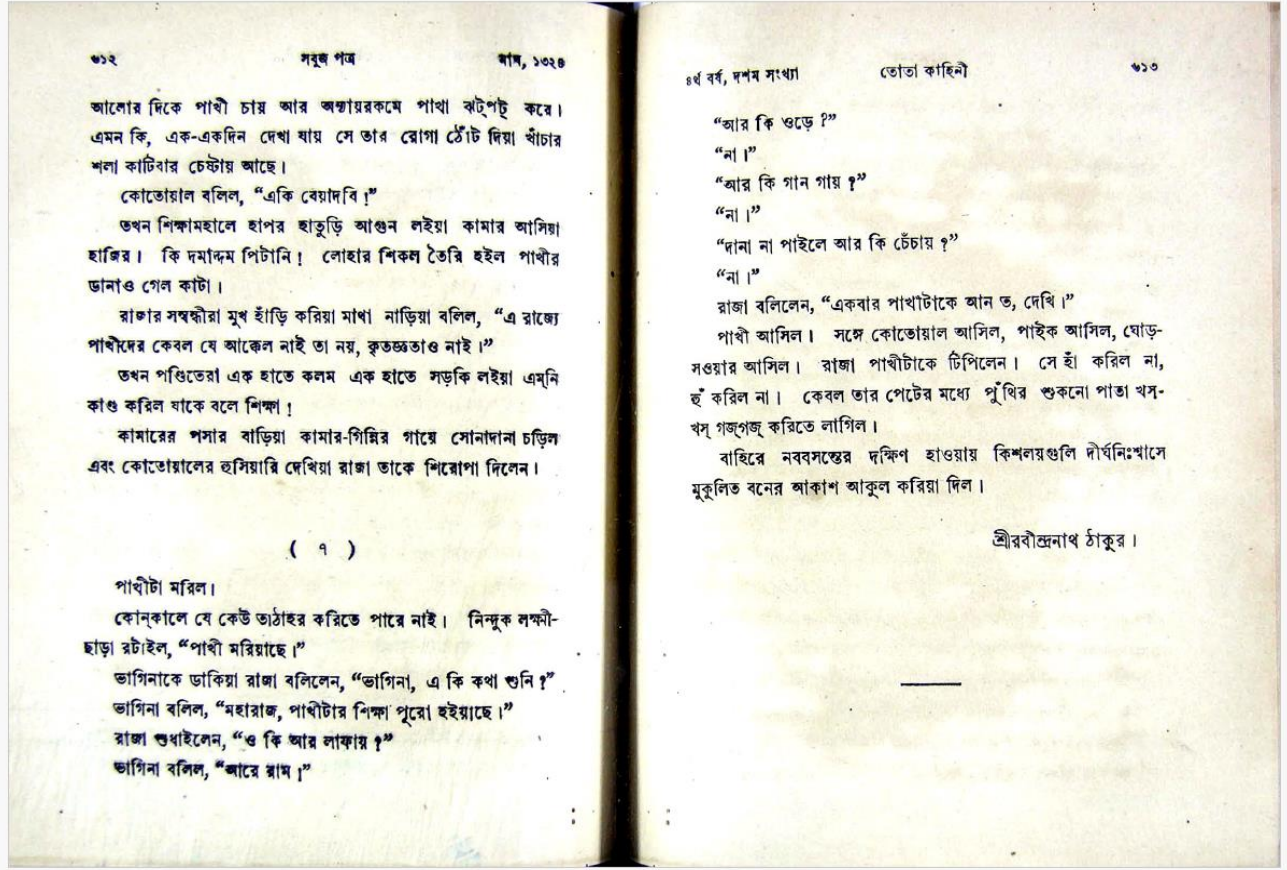 ৬১২ সবুজ পত্র মাঘ, ১৩২৪
আলোর দিকে পাখী চায় আর অন্যায়রকমে পাখা ঝট্‌পট্ করে।
এমন কি, এক-একদিন দেখা যায় সে তার রোগা ঠোঁট দিয়া খাঁচার
শলা কাটিবার চেষ্টায় আছে।
কোতোয়াল বলিল, “একি বেয়াদবি!”
তখন শিক্ষামহালে হাপর হাতুড়ি আগুন লইয়া কামার আসিয়া
হাজির। কি দমাদ্দম পিটানি! লোহার শিকল তৈরি হইল পাখীর
ডানাও গেল কাটা।
রাজার সম্বন্ধীরা মুখ হাঁড়ি করিয়া মাথা নাড়িয়া বলিল, “এ রাজ্যে
পাখীদের কেবল যে আক্কেল নাই তা নয়, কৃতজ্ঞতাও নাই।”
তখন পণ্ডিতেরা এক হাতে কলম এক হাতে সড়কি লইয়া এম্‌নি
কাণ্ড করিল যাকে বলে শিক্ষা!
কামারের পসার বাড়িয়া কামার-গিন্নির গায়ে সোনাদানা চড়িল
এবং কোতোয়ালের হুসিয়ারি দেখিয়া রাজা তাকে শিরোপা দিলেন।
( ৭ )
পাখীটা মরিল।
কোন্‌কালে যে কেউ তাঠাহর করিতে পারে নাই। নিন্দুক লক্ষ্মী-
ছাড়া রটাইল, “পাখী মরিয়াছে।”
ভাগিনাকে ডাকিয়া রাজা বলিলেন, “ভাগিনা, এ কি কথা শুনি?”
ভাগিনা বলিল, “মহারাজ, পাখীটার শিক্ষা পূরো হইয়াছে।”
রাজা শুধাইলেন, “ও কি আর লাফায়?”
ভাগিনা বলিল, “আরে রাম!”
৪র্থ বর্ষ, দশম সংখ্যা তোতা কাহিনী ৬১৩
“আর কি ওড়ে?”
“না।”
“আর কি গান গায়?”
“না।”
“দানা না পাইলে আর কি চেঁচায়?”
“না।”
রাজা বলিলেন, “একবার পাখীটাকে আন ত, দেখি।”
পাখী আসিল। সঙ্গে কোতোয়াল আসিল, পাইক আসিল, ঘোড়-
সওয়ার আসিল। রাজা পাখীটাকে টিপিলেন। সে হাঁ করিল না,
হুঁ করিল না। কেবল তার পেটের মধ্যে পুঁথির শুকনো পাতা খস্-
খস্ গজ্‌গজ্ করিতে লাগিল।
বাহিরে নববসন্তের দক্ষিণ হাওয়ায় কিশলয়গুলি দীর্ঘনিঃশ্বাসে
মুকুলিত বনের আকাশ আকুল করিয়া দিল।
শ্রীরবীন্দ্রনাথ ঠাকুর।